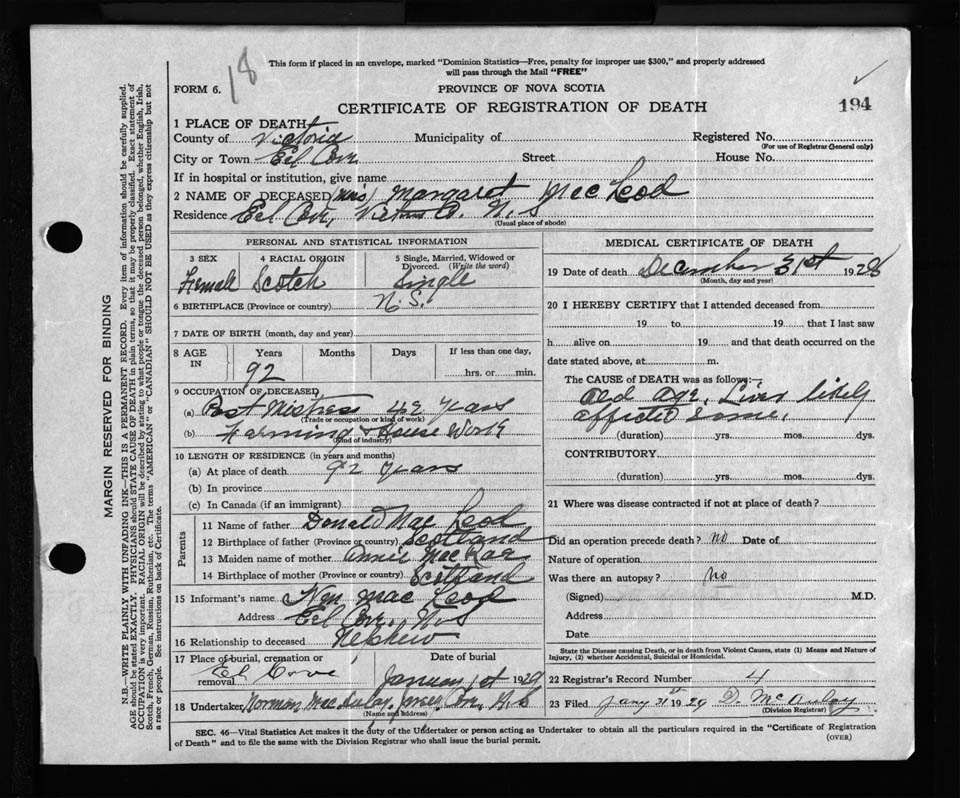 18
This form if placed in an envelope, marked "Dominion Statistics—Free, penalty for improper use $300," and properly addressed
will pass through the Mail "FREE"
FORM 6.
PROVINCE OF NOVA SCOTIA
CERTIFICATE OF REGISTRATION OF DEATH
194
1 PLACE OF DEATH
County of Victoria Municipality of Registered No.
(For use of Registrar General only)
City or Town Eel Cove Street House No.
If in hospital or institution, give name
2 NAME OF DECEASED Margaret MacLeod
Residence Eel Cove, Victoria Co. N.S
(Usual place of abode)
PERSONAL AND STATISTICAL INFORMATION
3 SEX 4 RACIAL ORIGIN 5 Single, Married, Widowed or Divorced. (Write the word)
Female Scotch Single
6 BIRTHPLACE (Province or country) N.S.
7 DATE OF BIRTH (month, day and year)
8 AGE IN Years Months Days If less than one day,
92 hrs. or min.
9 OCCUPATION OF DECEASED
(a) Post Mistress 42 Years
(Trade or occupation or kind of work)
(b) Farming & House Work
(Kind of industry)
10 LENGTH OF RESIDENCE (in years and months)
(a) At place of death 92 Years
(b) In province
(c) In Canada (if an immigrant)
Parents
11 Name of father Donald Mac Leod
12 Birthplace of father (Province or country) Scotland
13 Maiden name of mother Annie MacRae
14 Birthplace of mother (Province or country) Scotland
15 Informant's name Mac Leod
Address Eel Cove, N.S
16 Relationship to deceased Nephew
17 Place of burial, cremation or removal Date of burial
El Cove January 1st 1929
18 Undertaker Norman MacAulay, Cove, N.S
(Name and address)
MEDICAL CERTIFICATE OF DEATH
19 Date of death December 31st 1928
(Month, day and year)
20 I HEREBY CERTIFY that I attended deceased from
19 to 19 that I last saw
h alive on 19 and that death occurred on the
date stated above, at m.
The CAUSE OF DEATH was as follows:—
Old Age, Liver likely
affected some.
(duration) yrs. mos. dys.
CONTRIBUTORY
(duration) yrs. mos. dys.
21 Where was disease contracted if not at place of death?
Did an operation precede death? No Date of
Nature of operation
Was there an autopsy? No
(Signed) M.D.
Address
Date
State the Disease causing Death, or in death from Violent Causes, state (1) Means and Nature of
Injury, (2) whether Accidental, Suicidal or Homicidal.
22 Registrar's Record Number 4
23 Filed Jany 31st 1929 D. McAulay
(Division Registrar)
SEC. 46—Vital Statistics Act makes it the duty of the Undertaker or person acting as Undertaker to obtain all the particulars required in the "Certificate of Registration
of Death" and to file the same with the Division Registrar who shall issue the burial permit.
(OVER)
MARGIN RESERVED FOR BINDING
N.B.—WRITE PLAINLY, WITH UNFADING INK—THIS IS A PERMANENT RECORD. Every item of information should be carefully supplied.
AGE should be stated EXACTLY. PHYSICIANS should STATE CAUSE OF DEATH in plain terms, so that it may be properly classified. Exact statement of
OCCUPATION is very important. RACIAL ORIGIN will be described by stating to what people or tongue the deceased person belonged, whether English, Irish,
Scotch, French, German, Russian, Ruthenian, etc. The terms "AMERICAN" or "CANADIAN" SHOULD NOT BE USED as they express citizenship but not
a race or people. See instructions on back of Certificate.